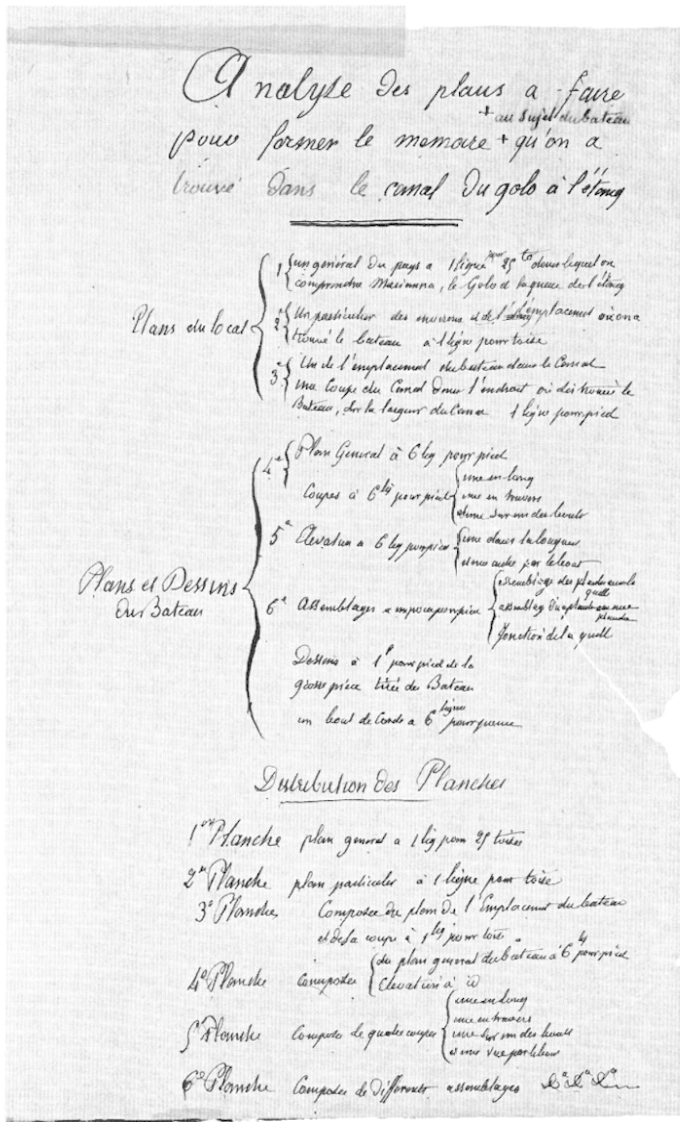 Analyse des plans a faire
+ au sujet du bateau
pour former le memoire + qu'on a
trouvé dans le canal du golo à l'étang
Plans du local
1 un général du pays a 1 ligne pour 25 to dans lequel on
comprendra Marianna, le Golo et la queue de l'étang
2e Un particulier des environs et de l'emplacement où on a
trouvé le bateau à 1 ligne pour toise
3e Un de l'emplacement du bateau dans le Canal
une Coupe du Canal dans l'endroit où
Bateau, sur la largeur du Canal 1 ligne pour pied
Plans et Dessins
du Bateau
4e Plan General à 6 lig pour pied
Coupes à 6 lig pour pied
une en long
une en travers
et une sur un des bouts
5e Elevation a 6 lig pour pied
une dans la longueur
et une autre par le bout
6e Assemblages a un pouce pour pied
assemblage des planches avec la
quille
assemblage d'une planche avec une
planche
Jonction de la quille
Dessins à 1 p pour pied de la
grosse pièce tirée du Bateau
un bout de Corde a 6 lignes pour pouce
Distribution des Planches
1ere Planche plan general a 1 lig pour 25 toises
2e Planche plan particulier à 1 ligne pour toise
3e Planche Composée du plan de l'Emplacement du bateau
et de la coupe à 1 lig pour toise
4e Planche composée
du plan general du bateau à 6 lig pour pied
Elevation à id
5e Planche Composée de quatre coupes
une en long
une en travers
une sur un des bouts
et une vue par le bout
6e Planche Composée de differents assemblages &a &a &a